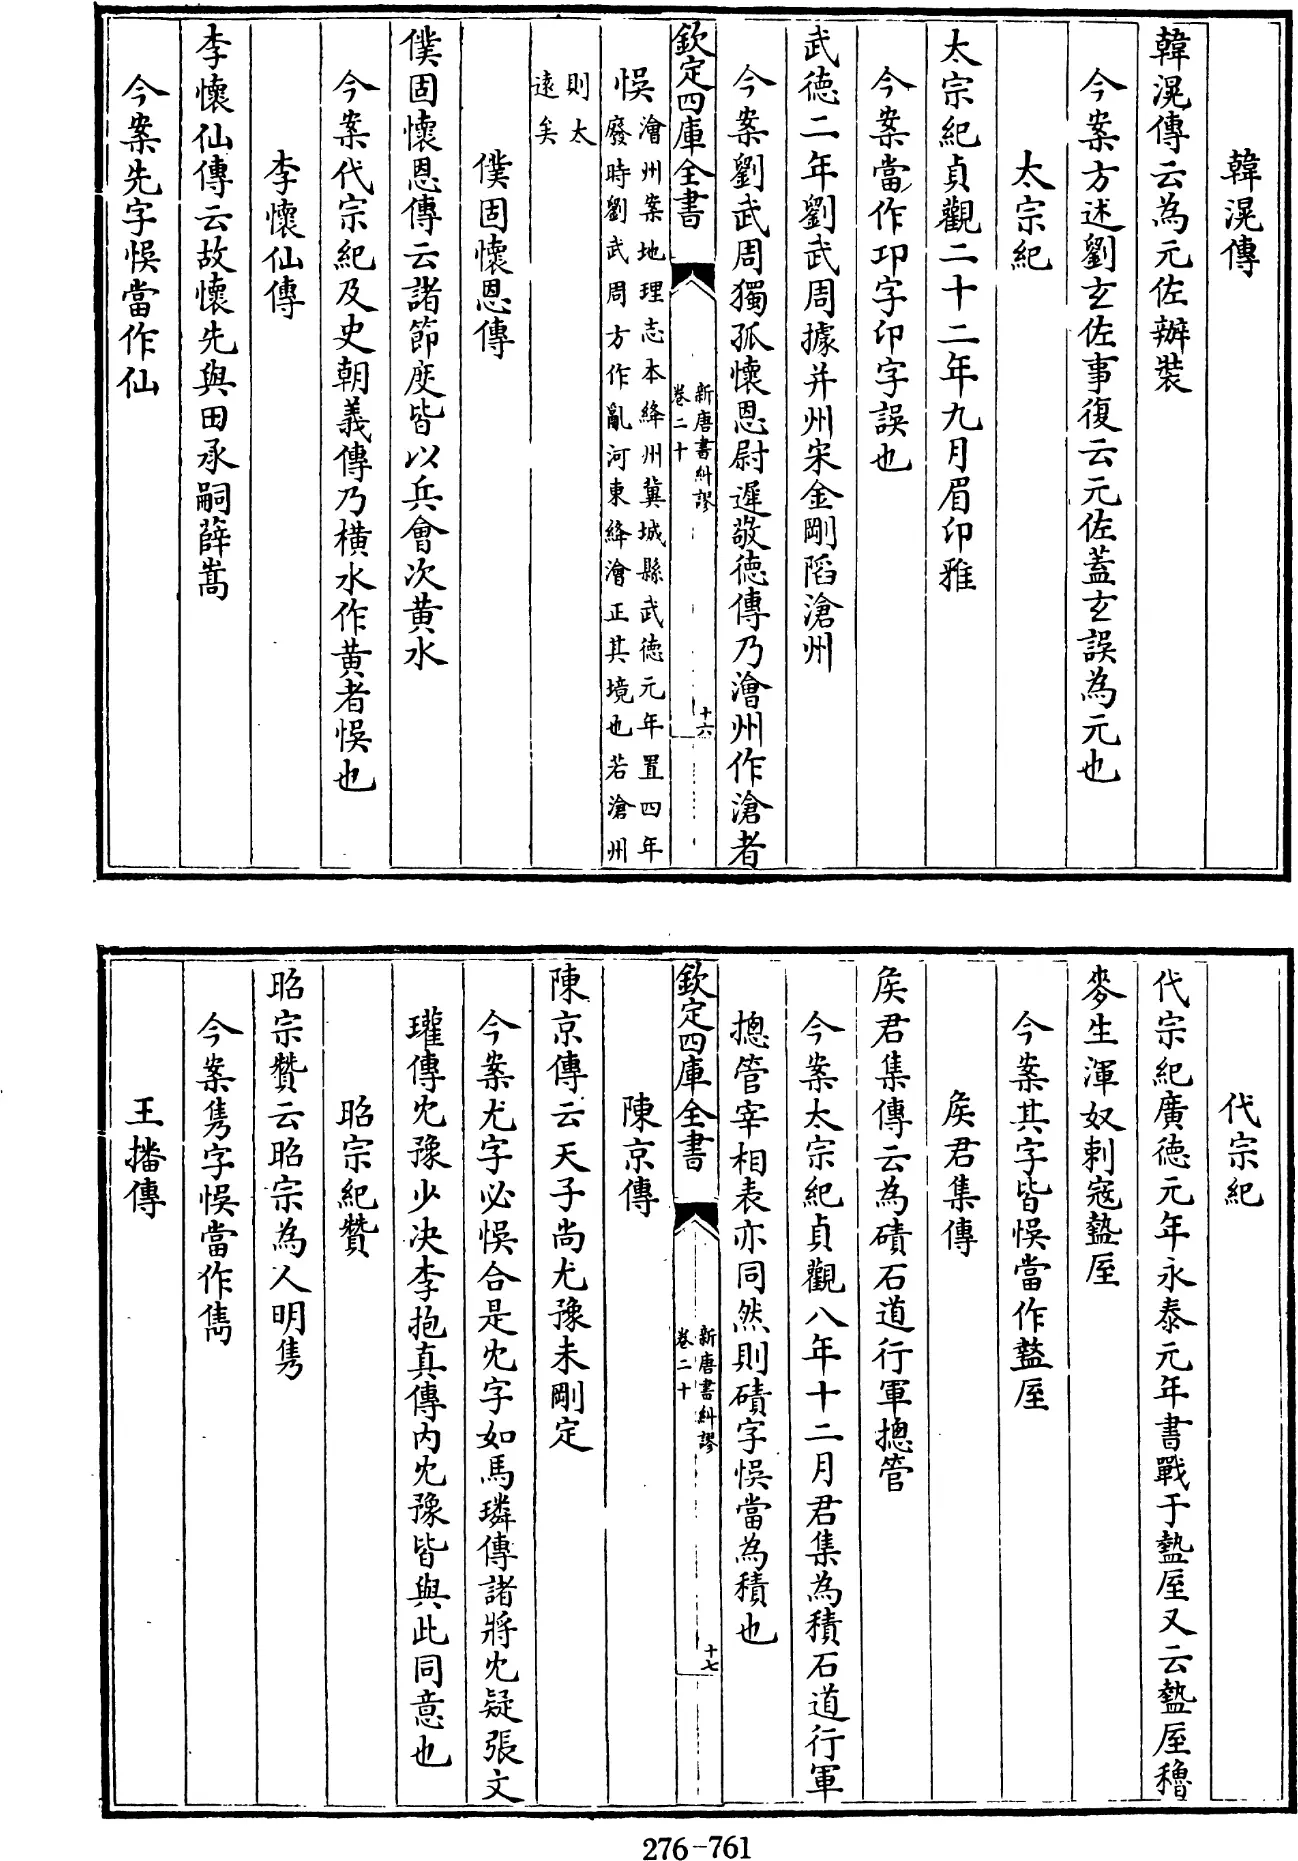 韓滉傳
韓滉傳云為元佐辦裝
今案方述劉玄佐事復云元佐蓋玄誤為元也
太宗紀
太宗紀貞觀二十二年九月眉印雅
今案當作邛字印字誤也
武徳二年劉武周據并州宋金剛陷滄州
今案劉武周獨孤懷恩尉遲敬徳傳乃澮州作滄者
欽定四庫全書
新唐書糾謬
卷二十
十六
悞
澮州案地理志本絳州冀城縣武徳元年置四年
廢時劉武周方作亂河東絳澮正其境也若滄州
則太
逺矣
僕固懷恩傳
僕固懷恩傳云諸節度皆以兵會次黄水
今案代宗紀及史朝義傳乃横水作黄者悞也
李懷仙傳
李懷仙傳云故懷先與田承嗣薛嵩
今案先字悞當作仙
代宗紀
代宗紀廣徳元年永泰元年書戰于盩厔又云盩厔穭
麥生渾奴剌宼盩厔
今案其字皆悞當作盩厔
矦君集傳
矦君集傳云為磧石道行軍摠管
今案太宗紀貞觀八年十二月君集為積石道行軍
摠管宰相表亦同然則磧字悞當為積也
欽定四庫全書
新唐書糾謬
卷二十
十七
陳京傳
陳京傳云天子尚尤豫未剛定
今案尤字必悞合是冘字如馬璘傳諸將冘疑張文
瓘傳冘豫少决李抱真傳内冘豫皆與此同意也
昭宗紀贊
昭宗贊云昭宗為人明隽
今案隽字悞當作雋
王播傳
276-761